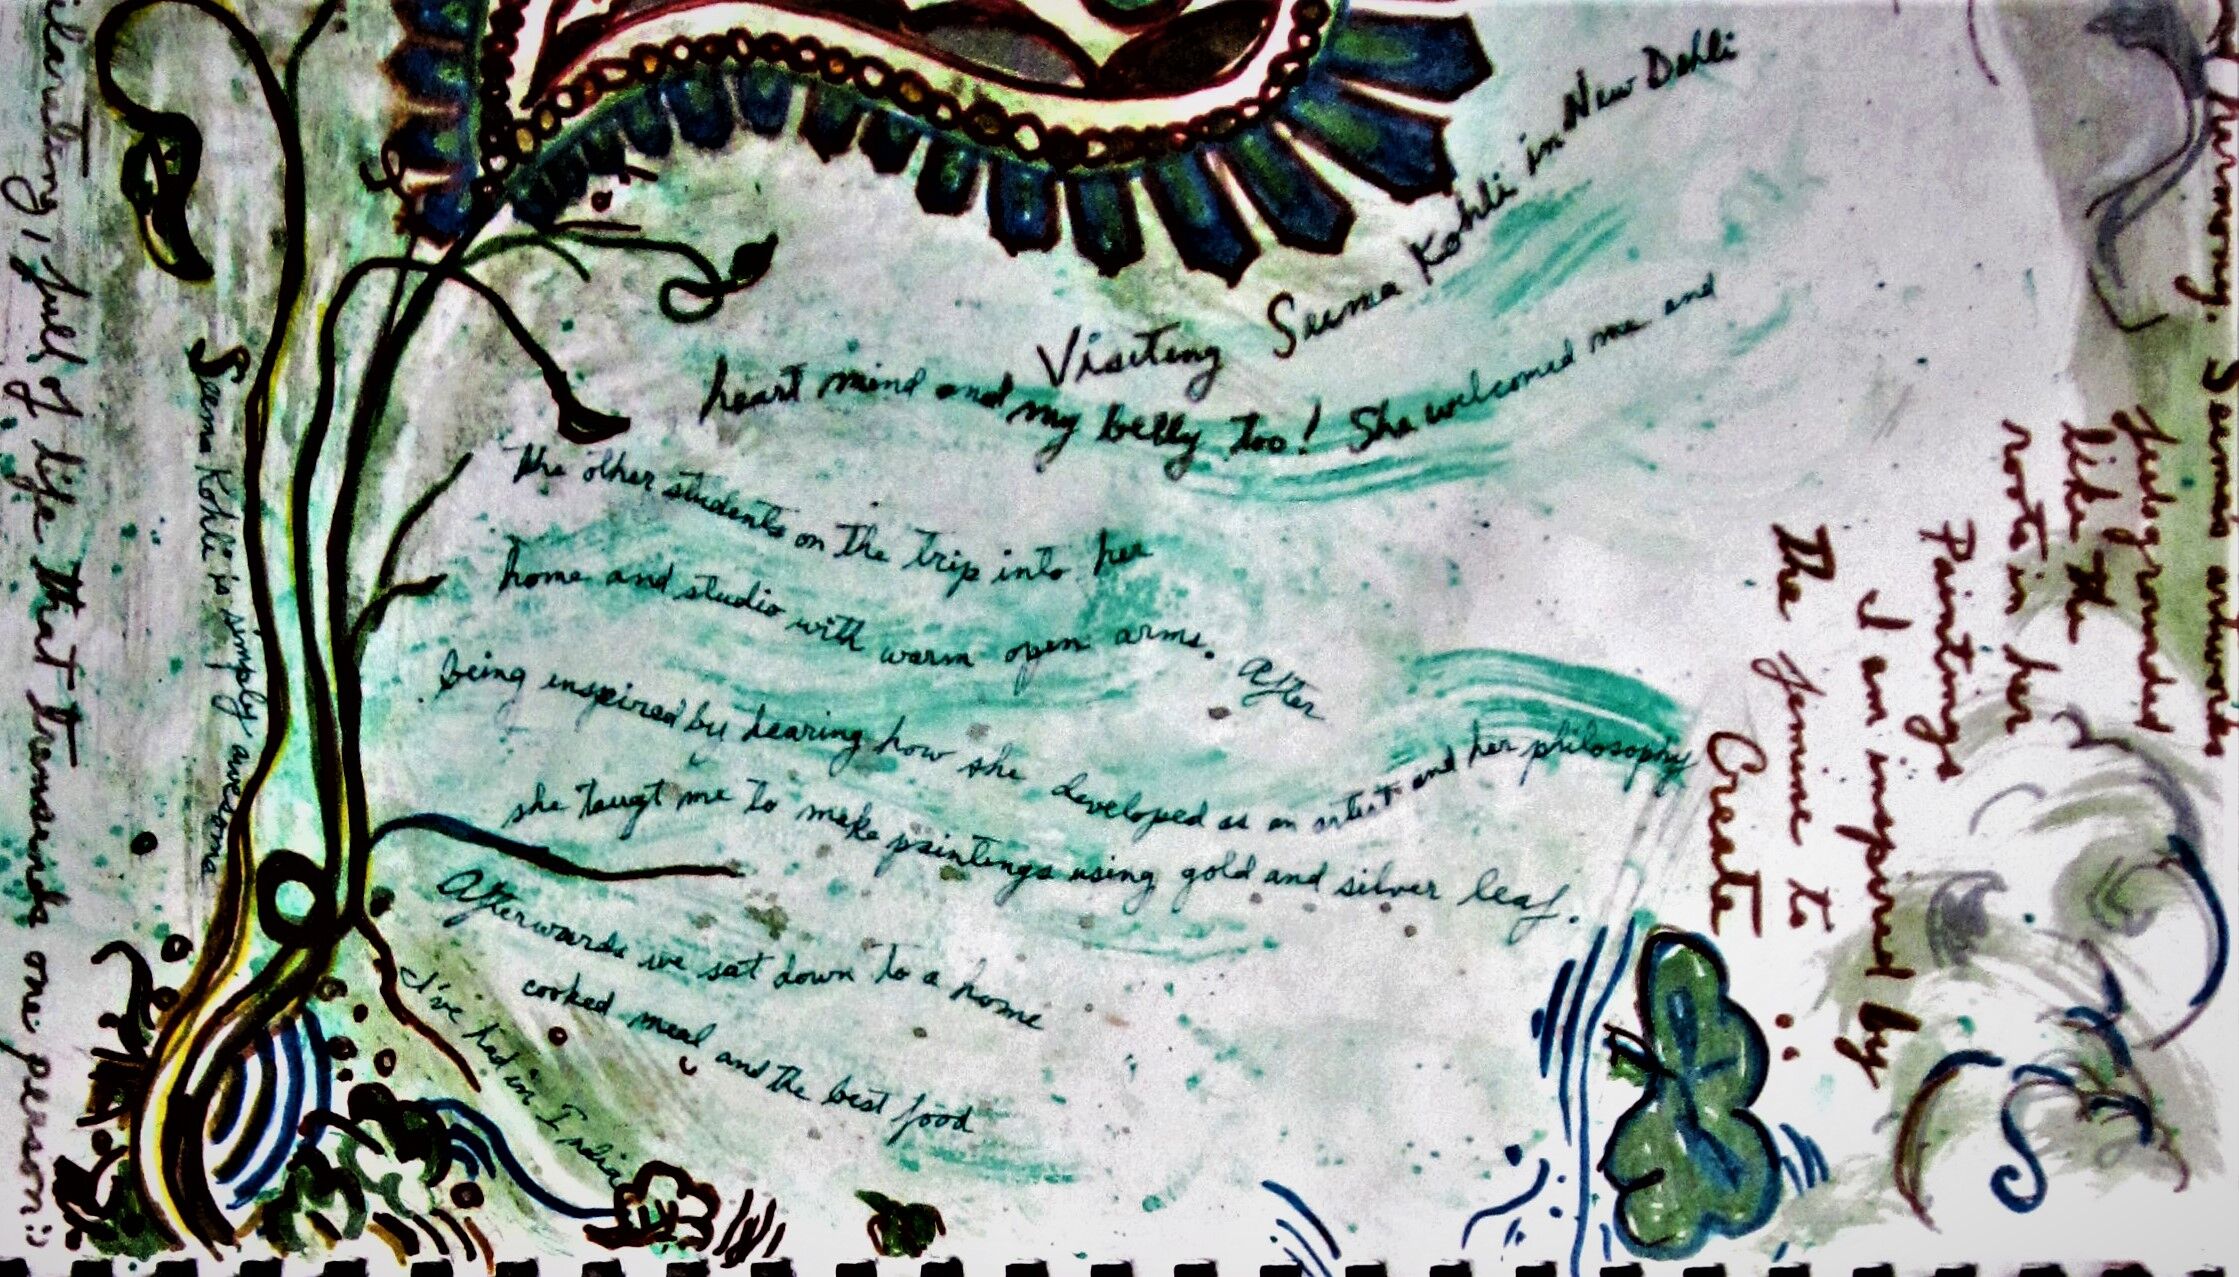 Visiting Seema Kohli in New Dehli
heart mind and my belly too! She welcomed me and
the other students on the trip into her
home and studio with warm open arms. After
being inspired by hearing how she developed as an artist and her philosophy
she taugt me to make paintings using gold and silver leaf.
Afterwards we sat down to a home
cooked meal and the best food
I've had in India
Seema Kohli is simply awesome
full of life that transends one person :)
harmony. Seema's artwork
feels grounded
like the
roots in her
Paintings
I am inspired by
The femine to
Create